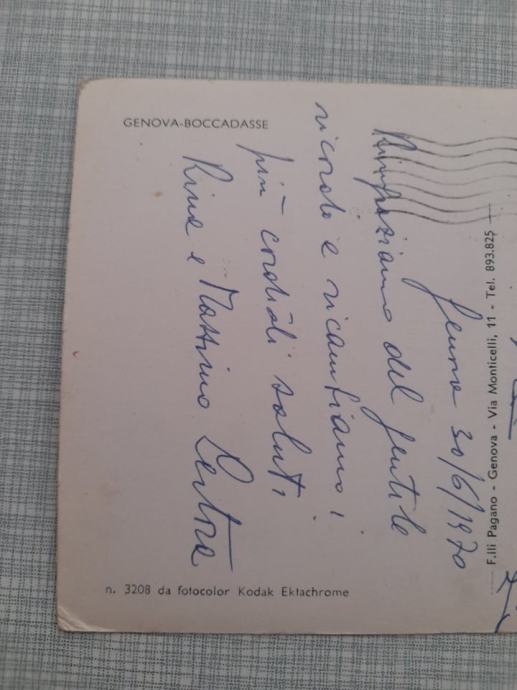 GENOVA-BOCCADASSE
Genova 30/6/1970
Ringraziamo del gentile
ricordo e ricambiamo i
più cordiali saluti
Rina e Massimo
n. 3208 da fotocolor Kodak Ektachrome
F.lli Pagano - Genova - Via Monticelli, 11 - Tel. 893.825